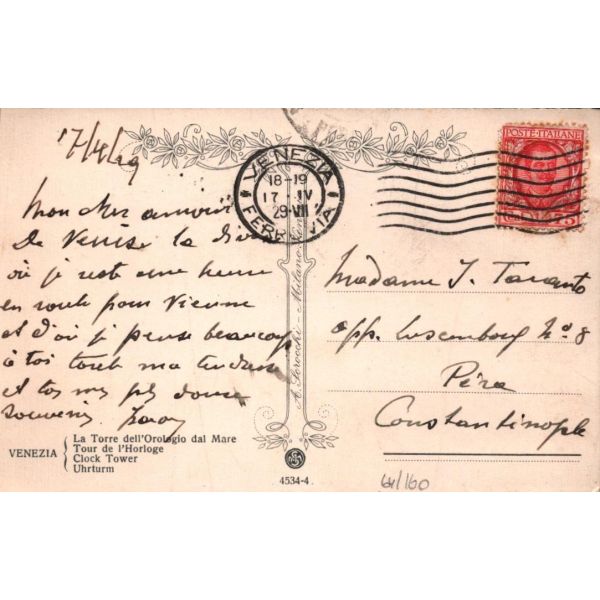 17/4/29
Mon cher amour
De Venise la divine
où je reste une heure
en route pour Vienne
et d'où je pense beaucoup
à toi toute ma tendresse
et tos mes doux
souvenirs
VENEZIA
18-19
17 IV
29 VII
FERROVIA
POSTE·ITALIANE
75
Madame J. Taranto
app. Luxembourg No 8
Péra
Constantinople
A. Scrocchi - Milano
VENEZIA
La Torre dell'Orologio dal Mare
Tour de l'Horloge
Clock Tower
Uhrturm
4534-4
64/160